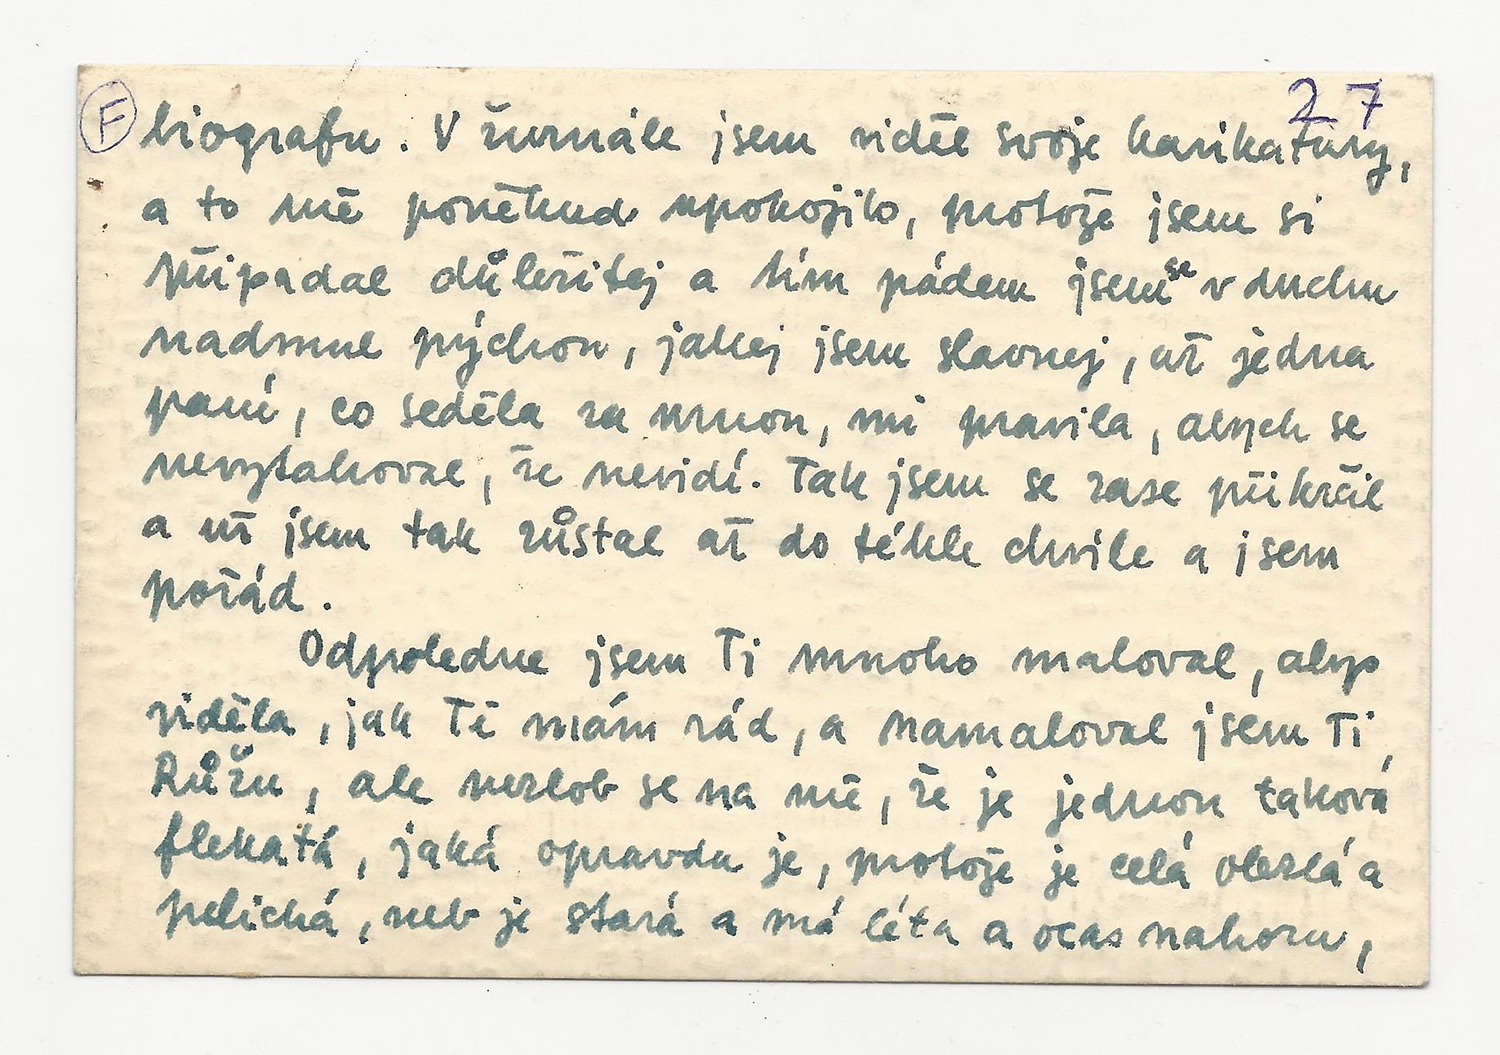 F 27
biografu. V žurnále jsem viděl svoje karikatury,
a to mě poněkud upokojilo, protože jsem si
připadal důležitej a tím pádem jsem se v duchu
nadmul pýchou, jakej jsem slavnej, až jedna
paní, co seděla za mnou, mi pravila, abych se
nevytahoval, že nevidí. Tak jsem se zase přikrčil
a už jsem tak zůstal až do téhle chvíle a jsem
pořád.
Odpoledne jsem Ti mnoho maloval, abys
viděla, jak Tě mám rád, a namaloval jsem Ti
Růžu, ale nezlob se na mě, že je jednou taková
flekatá, jaká opravdu je, protože je celá olezlá a
pelichá, neb je stará a má léta a ocas nahoru,